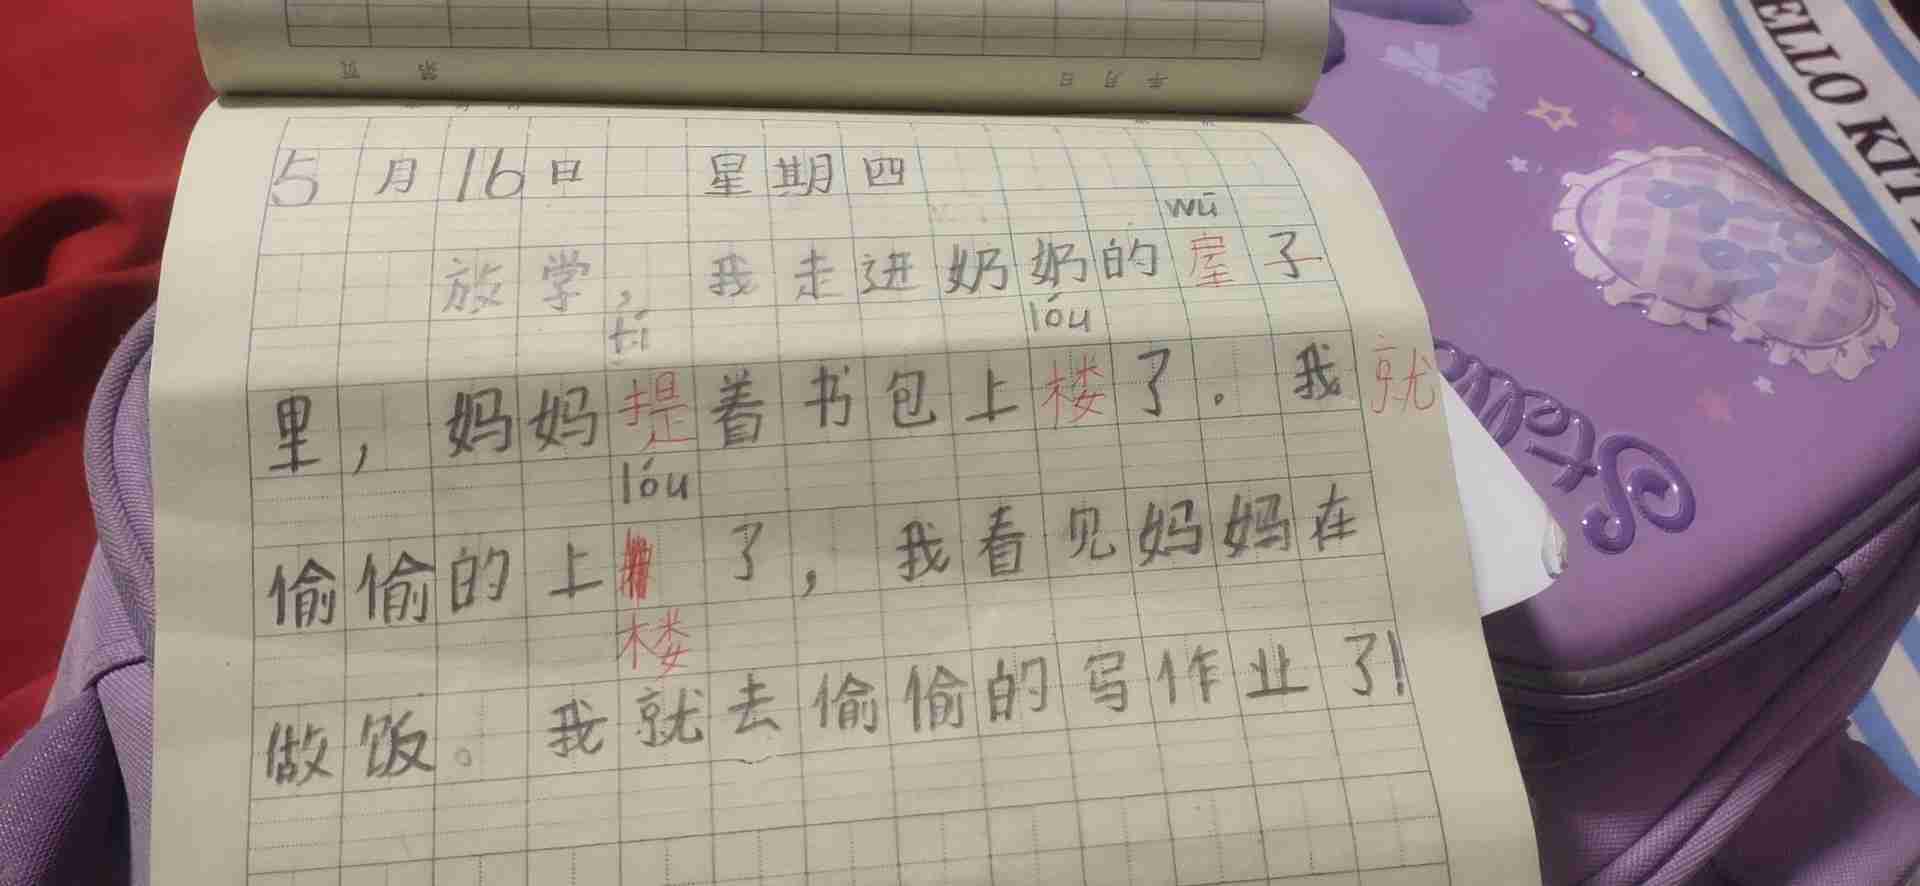 页 第 日 月 年
5月16日 星期四
wū
放学，我走进奶奶的屋子
tí lóu
里，妈妈提着书包上楼了．我就
lóu
偷偷的上 了，我看见妈妈在
楼
做饭。我就去偷偷的写作业了！
ELLO KIT